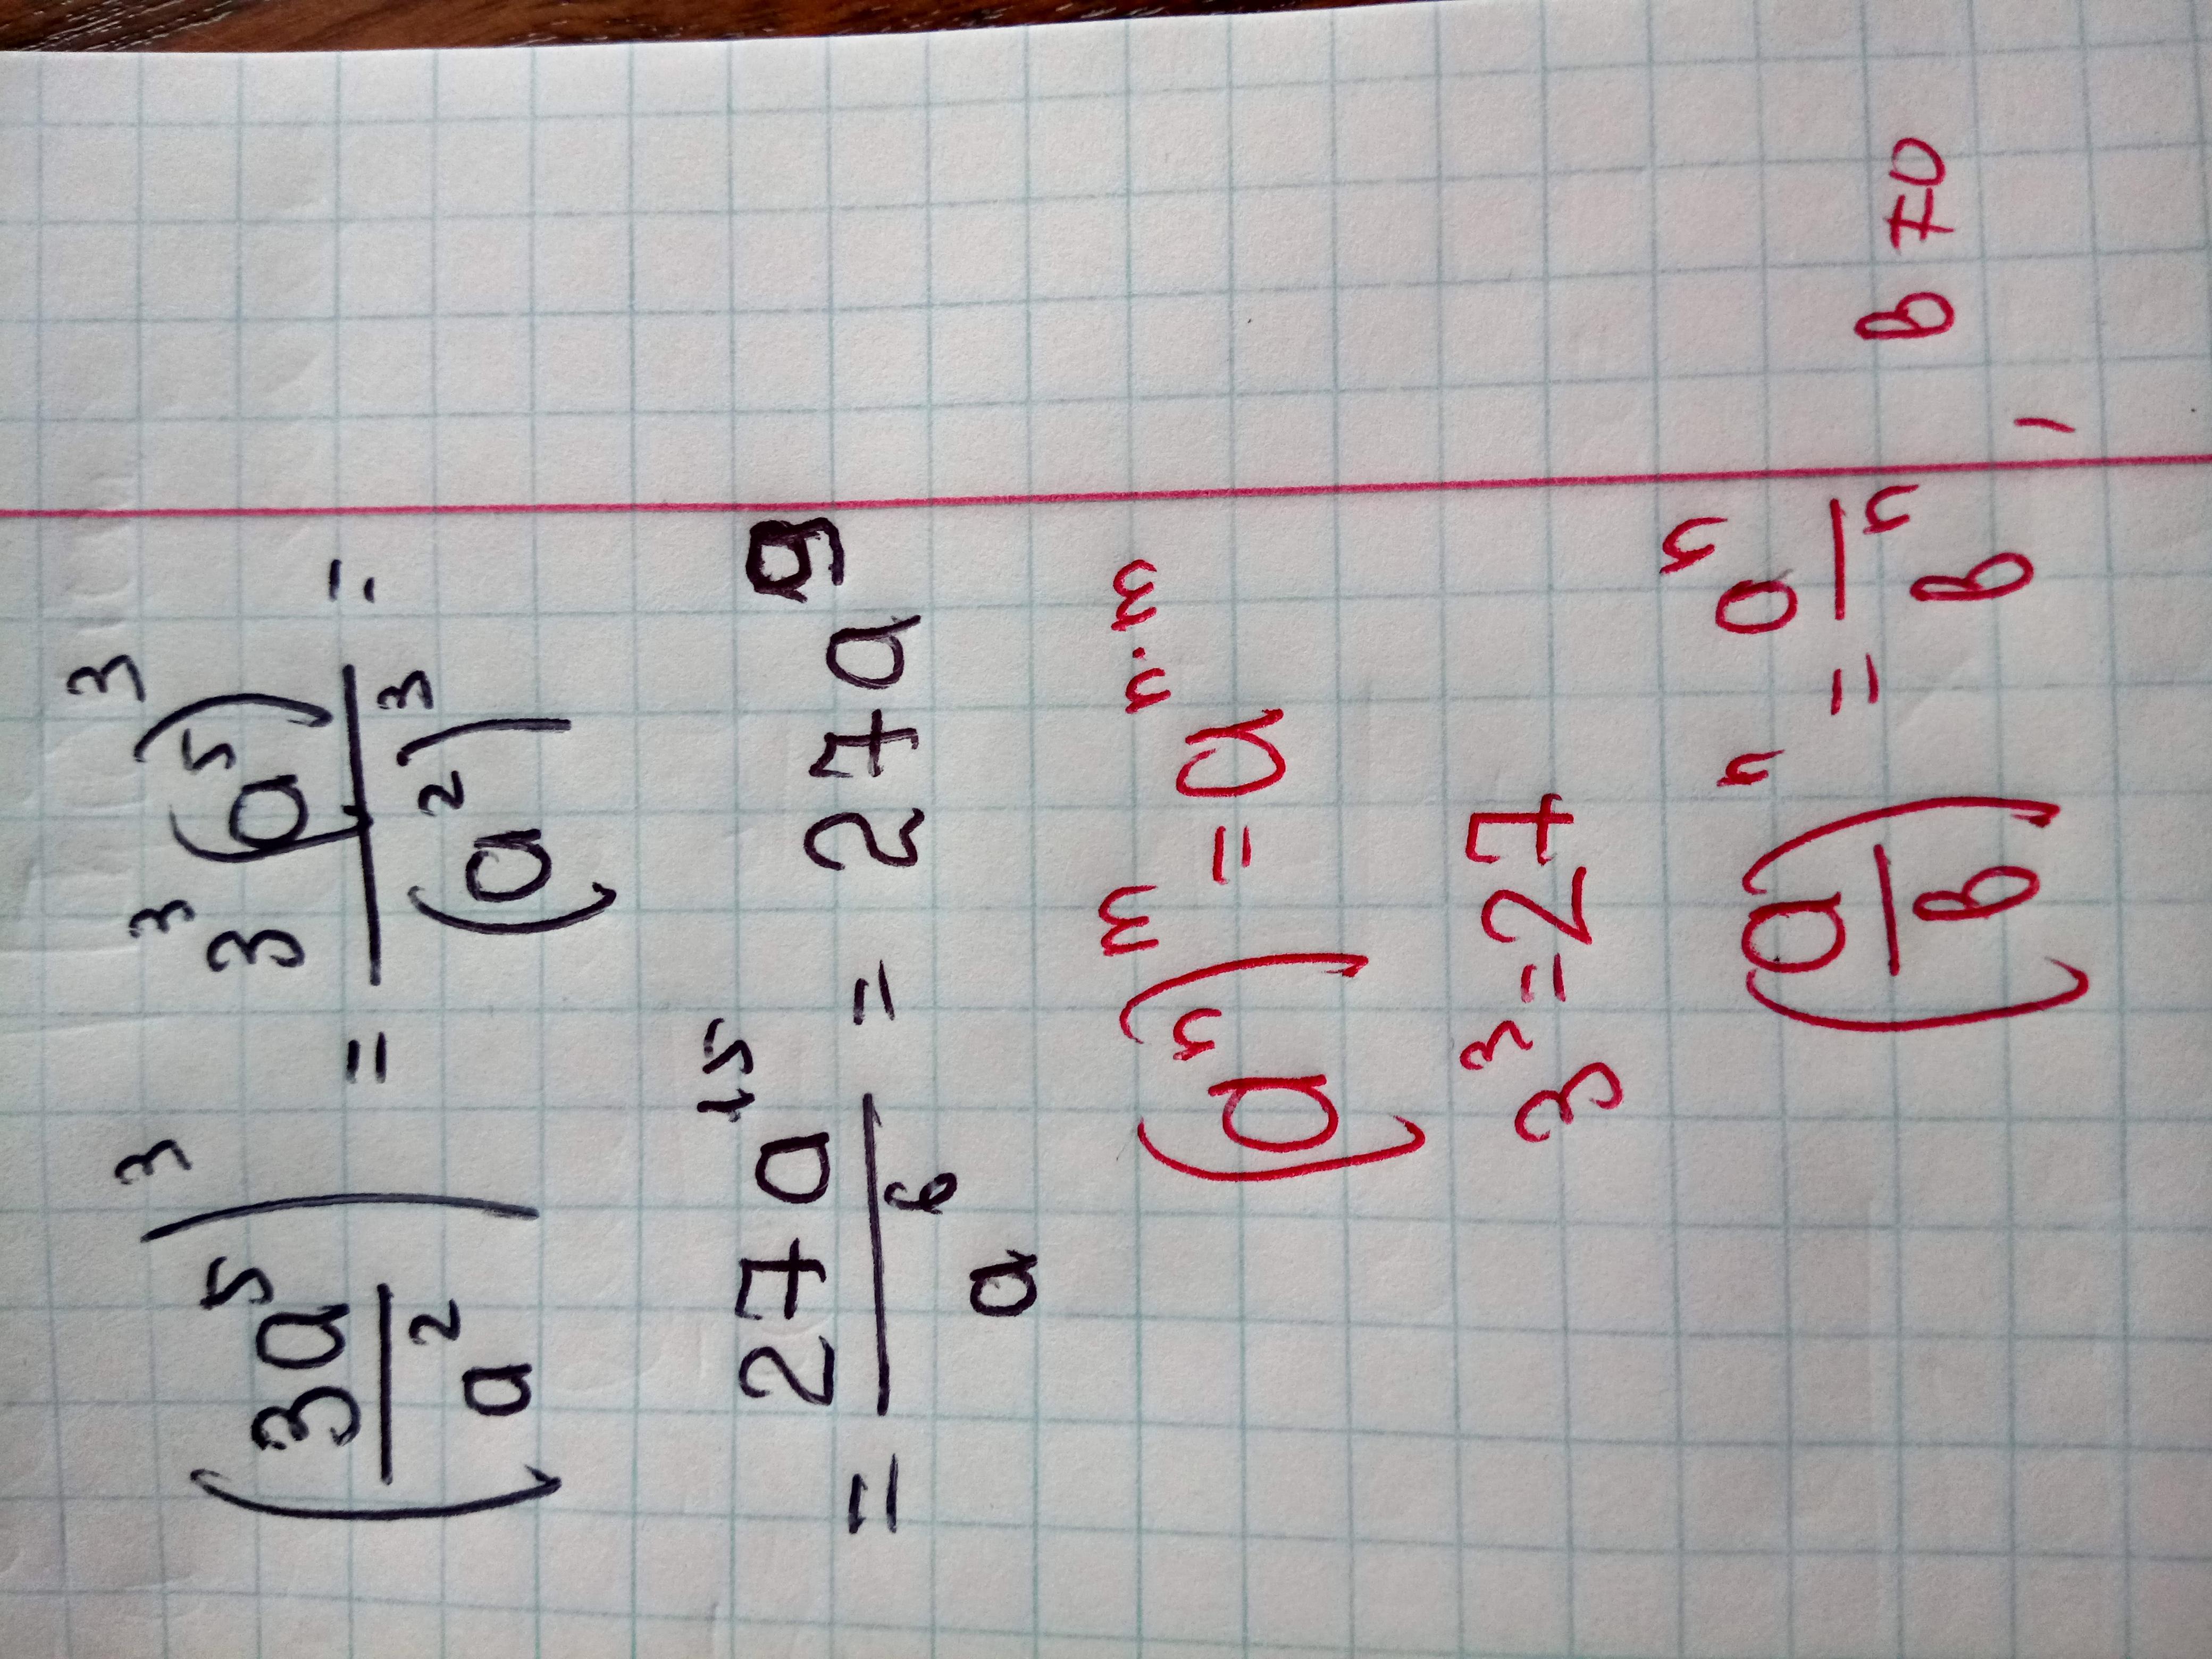 (3a⁵/a²)³ = 3³(a⁵)³/(a²)³ =
= 27a¹⁵/a⁶ = 27a⁹
(aⁿ)ᵐ = aⁿ·ᵐ
3³=27
(a/b)ⁿ = aⁿ/bⁿ, b≠0